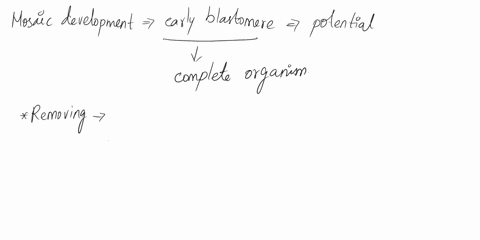 Mosaic development ⇒ early blastomere ⇒ potential
↓
complete organism
*Removing →